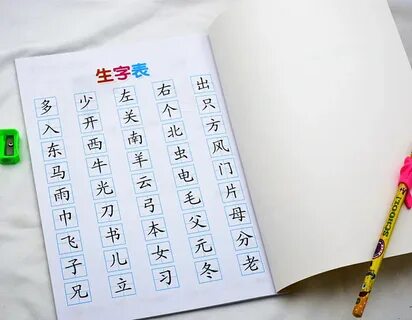 生字表
多 少 左 右 出
入 开 关 个 只
东 西 南 北 方
马 牛 羊 虫 风
雨 光 云 电 门
巾 刀 弓 毛 片
飞 书 本 父 母
子 儿 女 元 分
兄 立 习 冬 老
SCHOOL